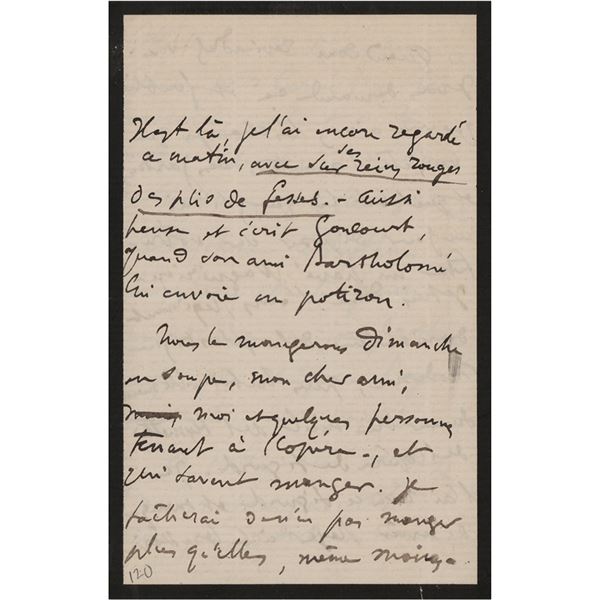 Il est là, je l'ai encore regardé
ce matin, avec sur ses reins rouges
des plis de fesses. – Aussi
pense et écrit Goncourt,
quand son ami Bartholomé
lui envoie un potiron.
Nous le mangerons Dimanche
en soupe, mon cher ami,
moi et quelques personnes
tenant à l'opéra –, et
qui savent manger. Je
tâcherai d'en pas manger
plus qu'elles, même moins –
120